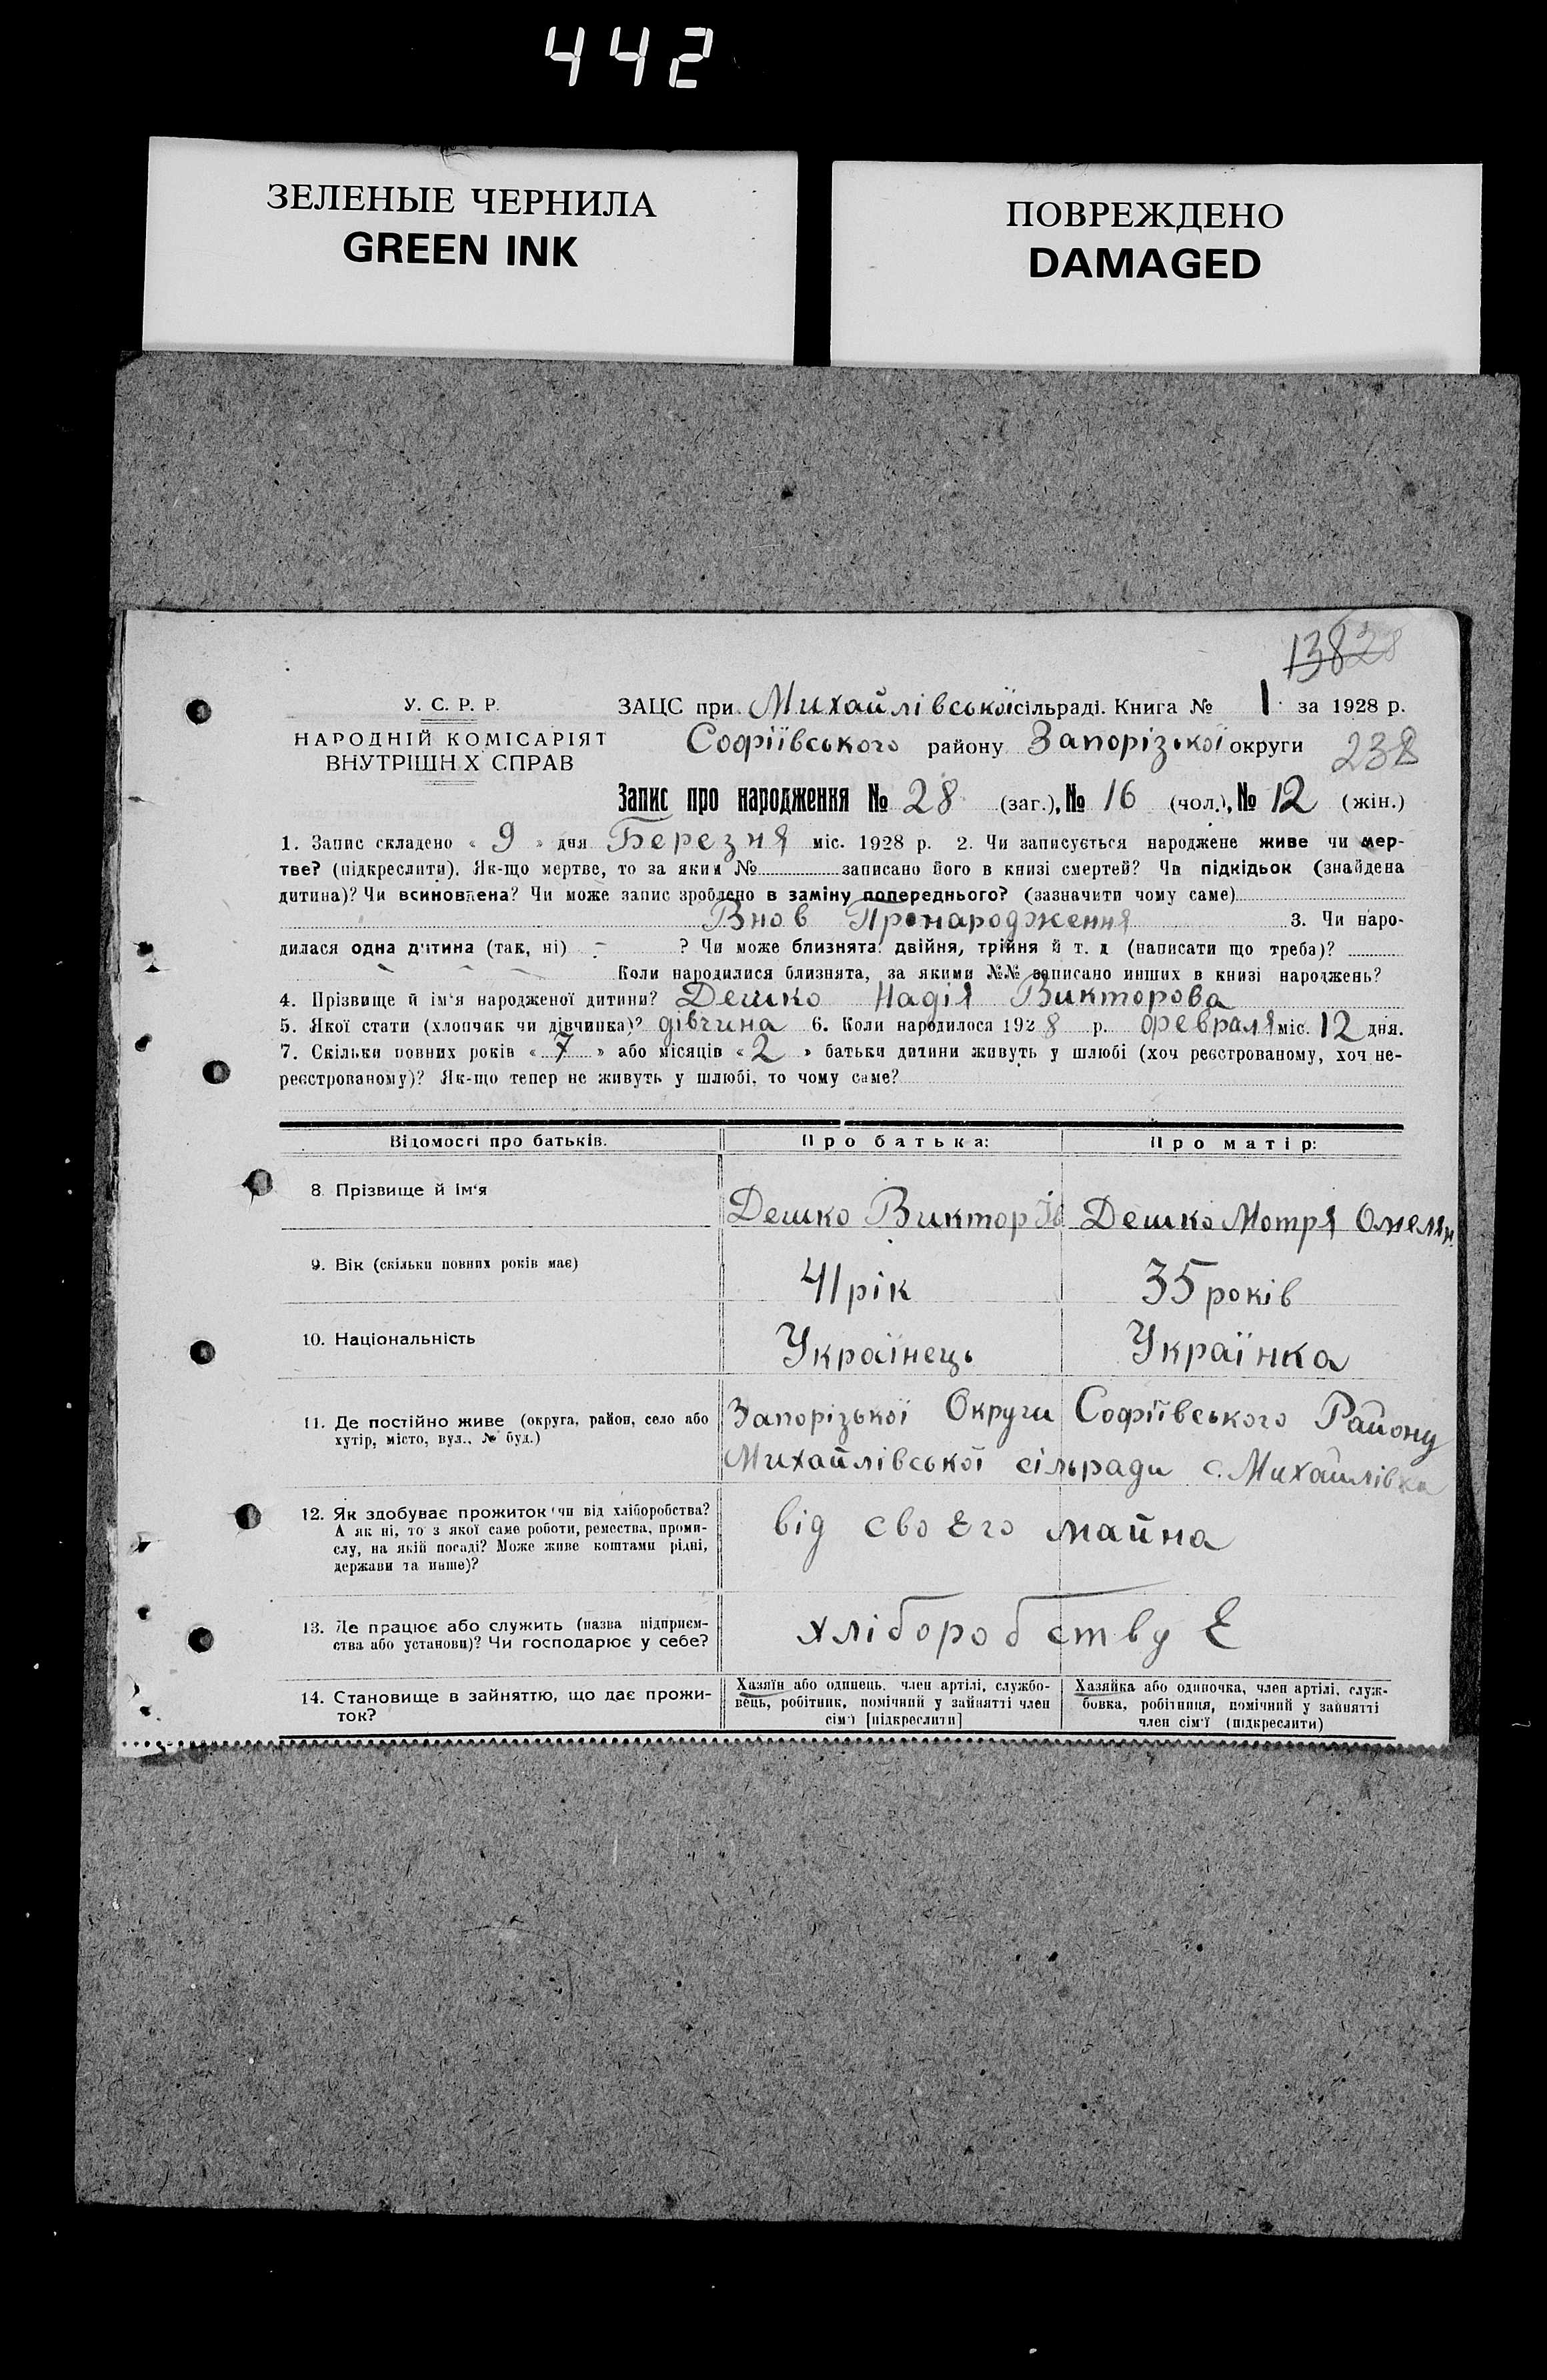 442
ЗЕЛЕНЫЕ ЧЕРНИЛА
GREEN INK
ПОВРЕЖДЕНО
DAMAGED
У. С. Р. Р.
НАРОДНІЙ КОМІСАРІЯТ
ВНУТРІШНИХ СПРАВ
13828
ЗАЦС при Михайлівської сільраді. Книга № 1 за 1928 р.
Софіївського району Запорізької округи
238
Запис про народження № 28 (заг.), № 16 (чол.), № 12 (жін.)
1. Запис складено « 9 » дня Березня міс. 1928 р. 2. Чи записується народжене живе чи мер-
тве? (підкреслити). Як-що мертве, то за яким № записано його в книзі смертей? Чи підкідьок (знайдена
дитина)? Чи всиновлена? Чи може запис зроблено в заміну попереднього? (зазначити чому саме)
Внов Пронародження 3. Чи наро-
дилася одна дитина (так, ні) - ? Чи може близнята: двійня, трійня й т. д (написати що треба)?
Коли народилися близнята, за якими №№ записано инших в книзі народжень?
4. Прізвище й ім'я народженої дитини? Дешко Надія Викторова
5. Якої стати (хлопчик чи дівчинка)? дівчина 6. Коли народилося 1928 р. февраля міс. 12 дня.
7. Скільки повних років « 7 » або місяців « 2 » батьки дитини живуть у шлюбі (хоч реєстрованому, хоч не-
реєстрованому)? Як-що тепер не живуть у шлюбі, то чому саме?
Відомості про батьків. Про батька: Про матір:
8. Прізвище й ім'я Дешко Виктор Ів Дешко Мотря Омелян.
9. Вік (скільки повних років має) 41 рік 35 років
10. Національність Українець Українка
11. Де постійно живе (округа, район, село або Запорізької Округи Софіївського Району
хутір, місто, вул., № буд.) Михайлівської сільради с. Михайлівка
12. Як здобуває прожиток чи від хліборобства?
А як ні, то з якої саме роботи, ремества, проми-
слу, на якій посаді? Може живе коштами рідні,
держави та инше)?
від своЕго майна
13. Де працює або служить (назва підприєм-
ства або установи)? Чи господарює у себе?
хліборобству Е
14. Становище в зайняттю, що дає прожи-
ток?
Хазяїн або одинець, член артілі, службо-
вець, робітник, помічний у зайнятті член
сім'ї [підкреслити]
Хазяйка або одиночка, член артілі, служ-
бовка, робітниця, помічний у зайнятті
член сім'ї (підкреслити)